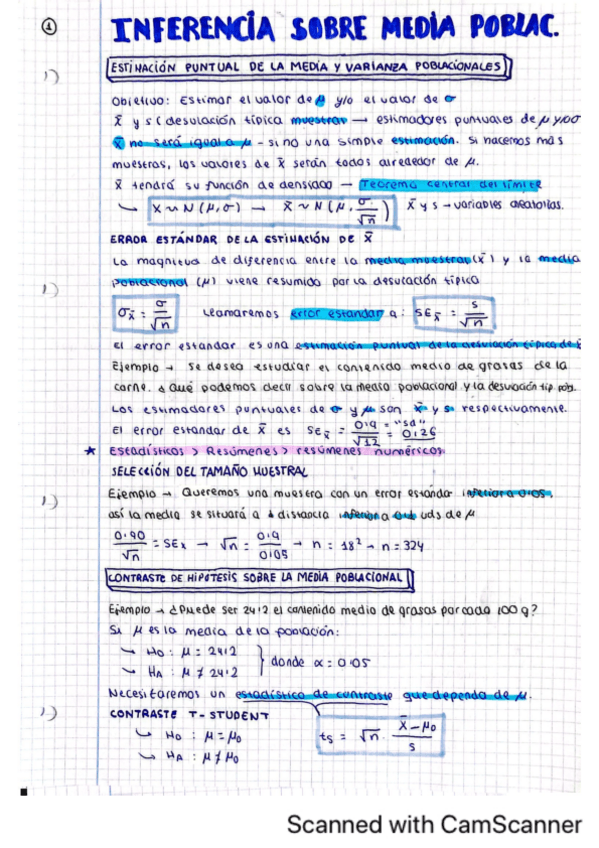 1
INFERENCIA SOBRE MEDIA POBLAC.
ESTIMACIÓN PUNTUAL DE LA MEDIA Y VARIANZA POBLACIONALES
Objetivo: Estimar el valor de μ y/o el valor de σ
x̄ y s (desviación típica muestra) → estimadores puntuales de μ y/o σ
x̄ no será igual a μ - si no una simple estimación. Si hacemos más
muestras, los valores de x̄ serán todos alrededor de μ.
x̄ tendrá su función de densidad → Teorema central del límite
↳ X ~ N (μ, σ) → x̄ ~ N (μ, σ/√n) x̄ y s → variables aleatorias.
ERROR ESTÁNDAR DE LA ESTIMACIÓN DE x̄
La magnitud de diferencia entre la media muestral (x̄) y la media
poblacional (μ) viene resumido por la desviación típica
σx̄ = σ/√n Llamaremos error estandar a: SEx̄ = s/√n
El error estandar es una estimación puntual de la desviación típica de x̄
Ejemplo → Se desea estudiar el contenido medio de grasas de la
carne. ¿Qué podemos decir sobre la media poblacional y la desviación tip. pob.
Los estimadores puntuales de σ y μ son x̄ y s respectivamente.
El error estandar de x̄ es SEx̄ = 0'9 = "sd"/√12 = 0'26
★ Estadísticos > Resúmenes > resúmenes numéricos
SELECCIÓN DEL TAMAÑO MUESTRAL
Ejemplo → Queremos una muestra con un error estándar inferior a 0'05,
así la media se situará a 1 distancia inferior a 0'1 uds de μ
0'90/√n = SEx → √n = 0'9/0'05 → n = 18² → n = 324
CONTRASTE DE HIPÓTESIS SOBRE LA MEDIA POBLACIONAL
Ejemplo → ¿Puede ser 24'2 el contenido medio de grasas por cada 100 g?
Si μ es la media de la población:
↳ H0 : μ = 24'2
↳ HA : μ ≠ 24'2 } donde α = 0'05
Necesitaremos un estadístico de contraste que dependa de μ.
CONTRASTE T-STUDENT
↳ H0 : μ = μ0
↳ HA : μ ≠ μ0
ts = √n · x̄ - μ0/s
Scanned with CamScanner